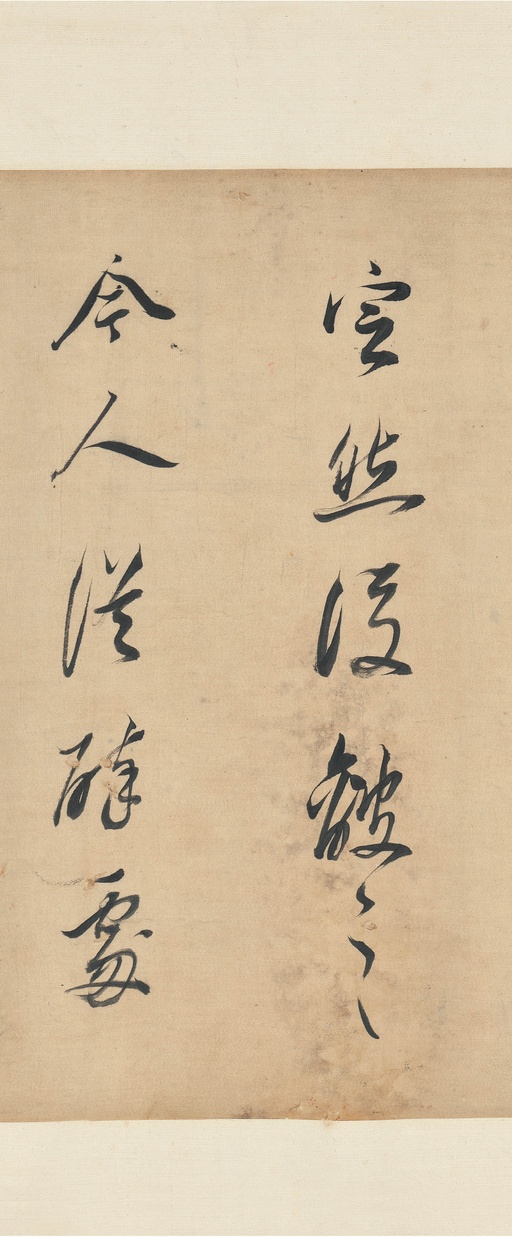 空然後皷之
令人從醉處